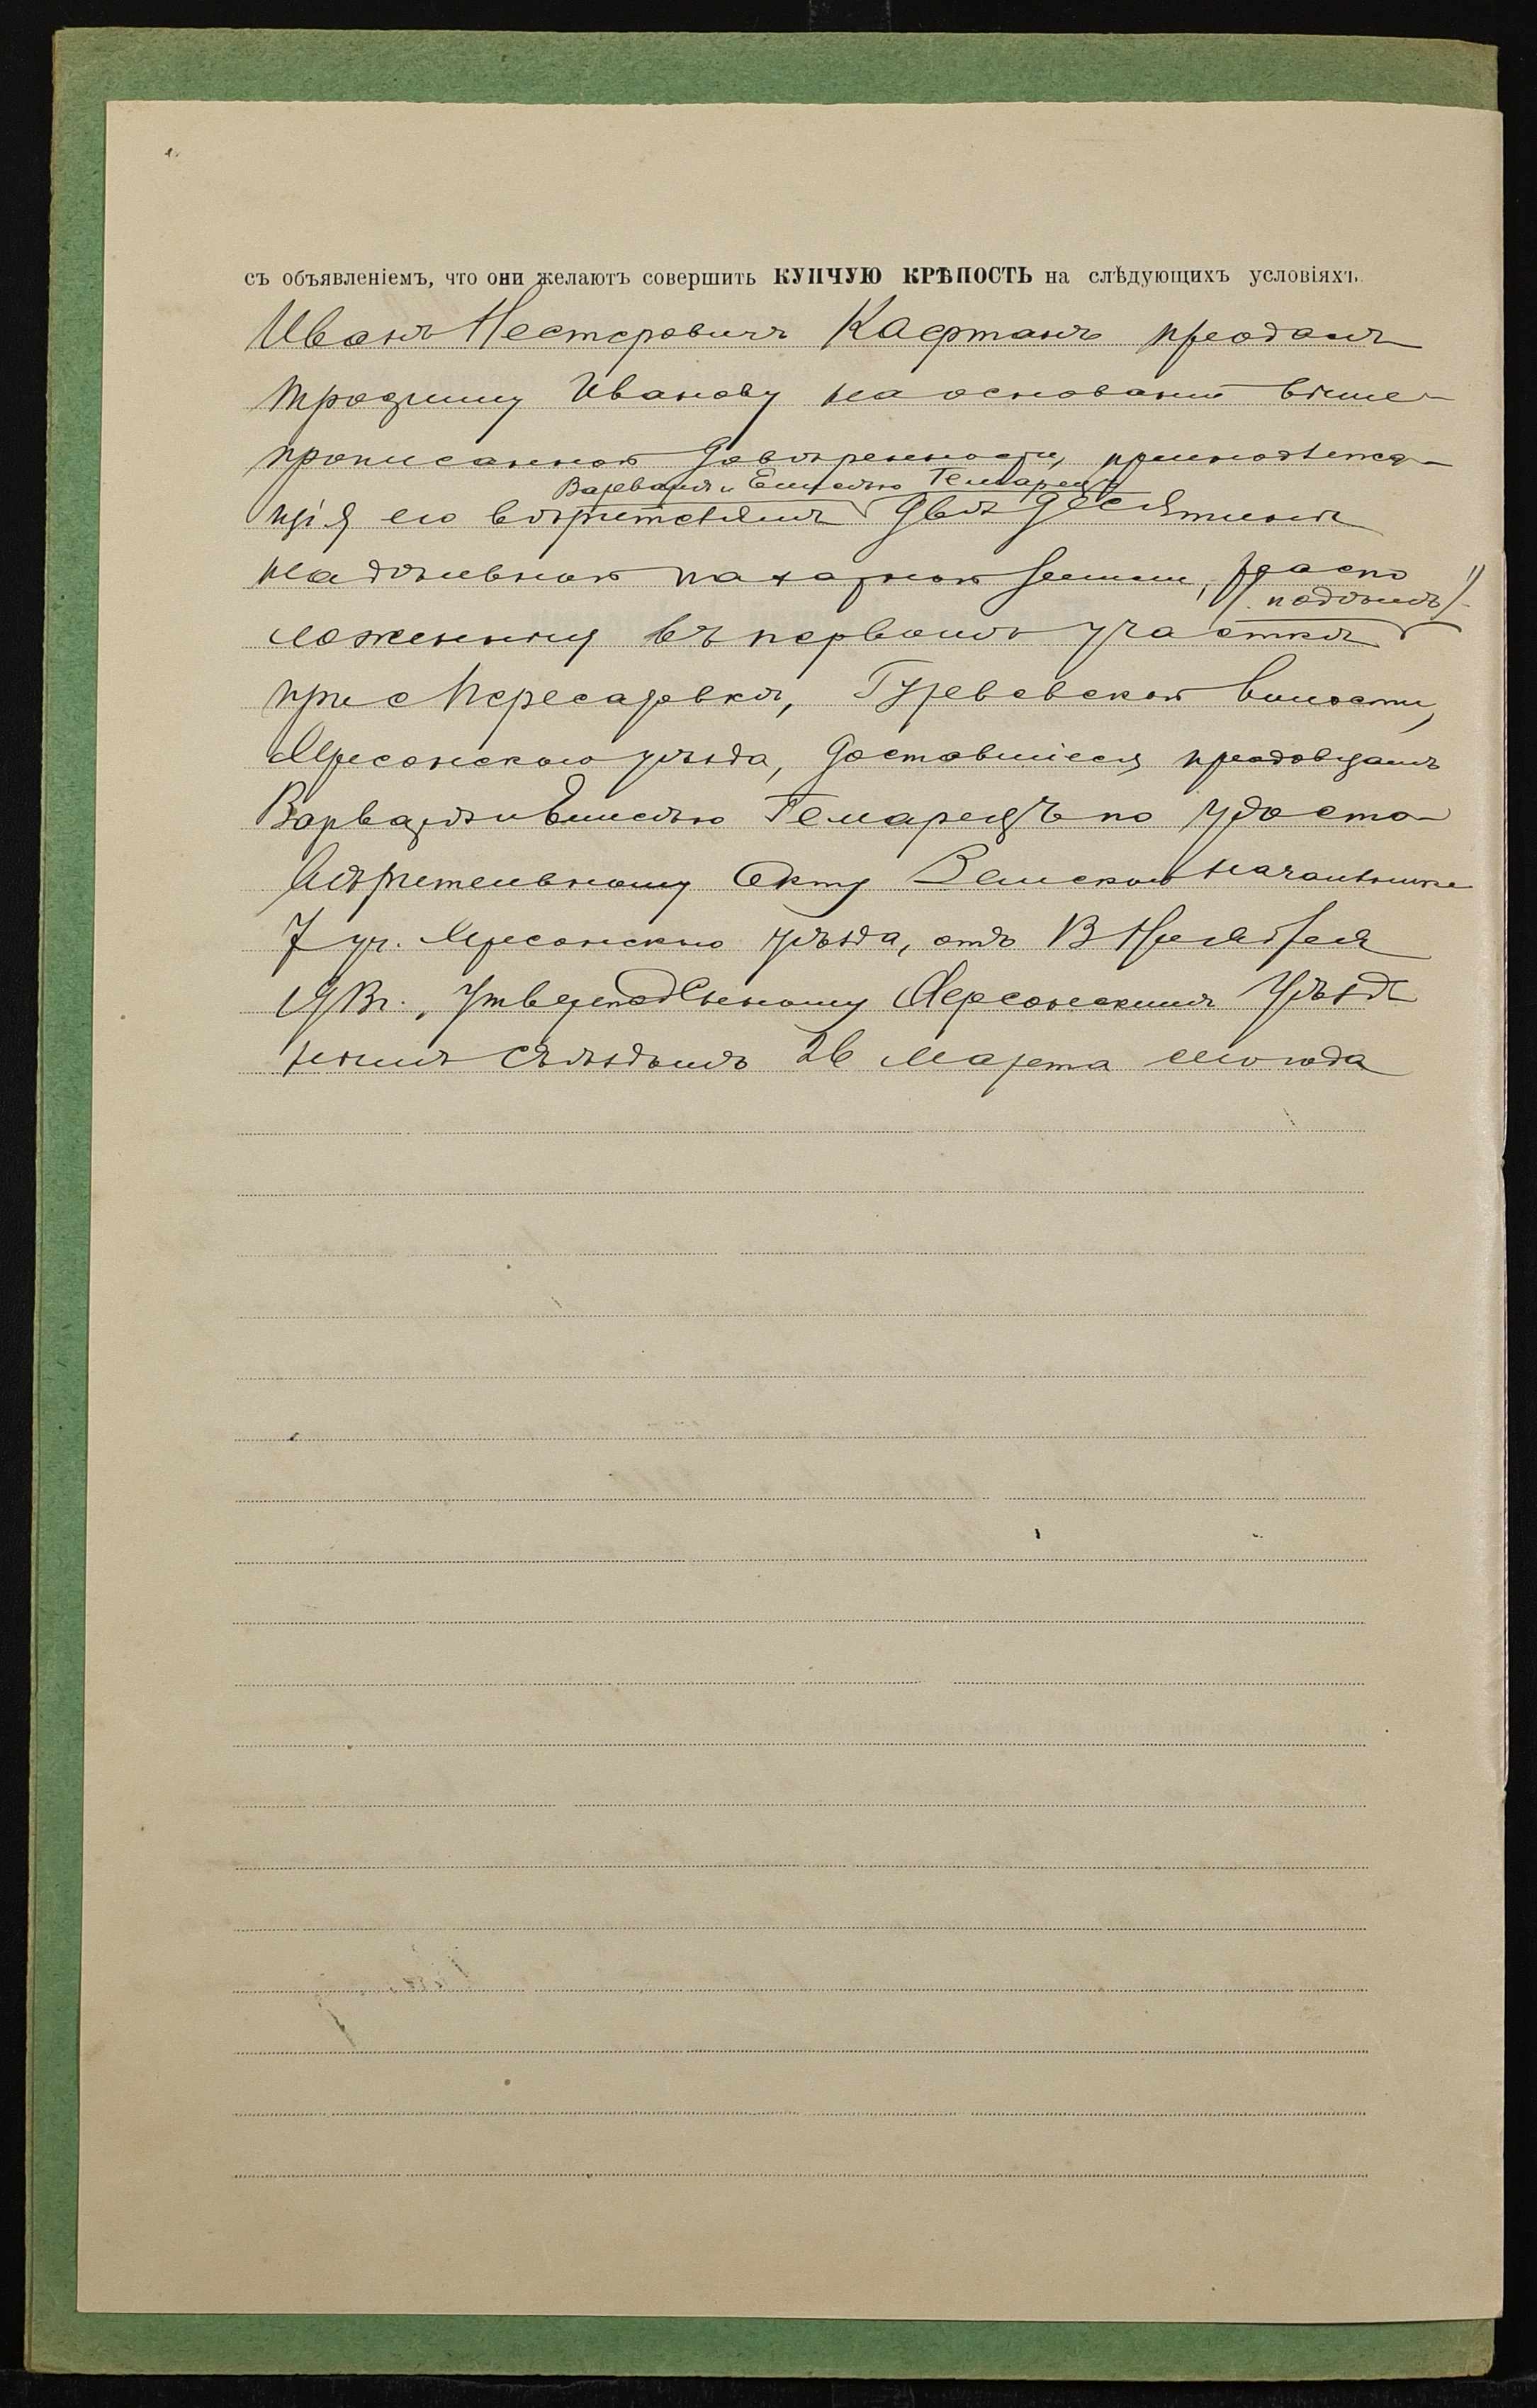 съ объявленіемъ, что они желаютъ совершить КУПЧУЮ КРѢПОСТЬ на слѣдующихъ условіяхъ.
Иванъ Нестеровичъ Кафтанъ продалъ
Трофиму Иванову на основаніи выше
прописанной довѣренности, принадлежа
щія его вѣрителямъ
Варварѣ и Емельяну Гемарецъ
двѣ десятины
надѣльной пахарной земли, распо
надѣлъ
ложенныя въ первомъ участкѣ
при с Пересадовкѣ, Гурьевской волости,
Херсонскаго уѣзда, доставшіеся продавцамъ
Варварѣ и Гемарецъ по удосто
вѣрительному Акту Земскаго Начальника
7 уч. Херсонскаго уѣзда, отъ
утвержденному Херсонскимъ Уѣзд
нымъ съѣздомъ 26 Марта года